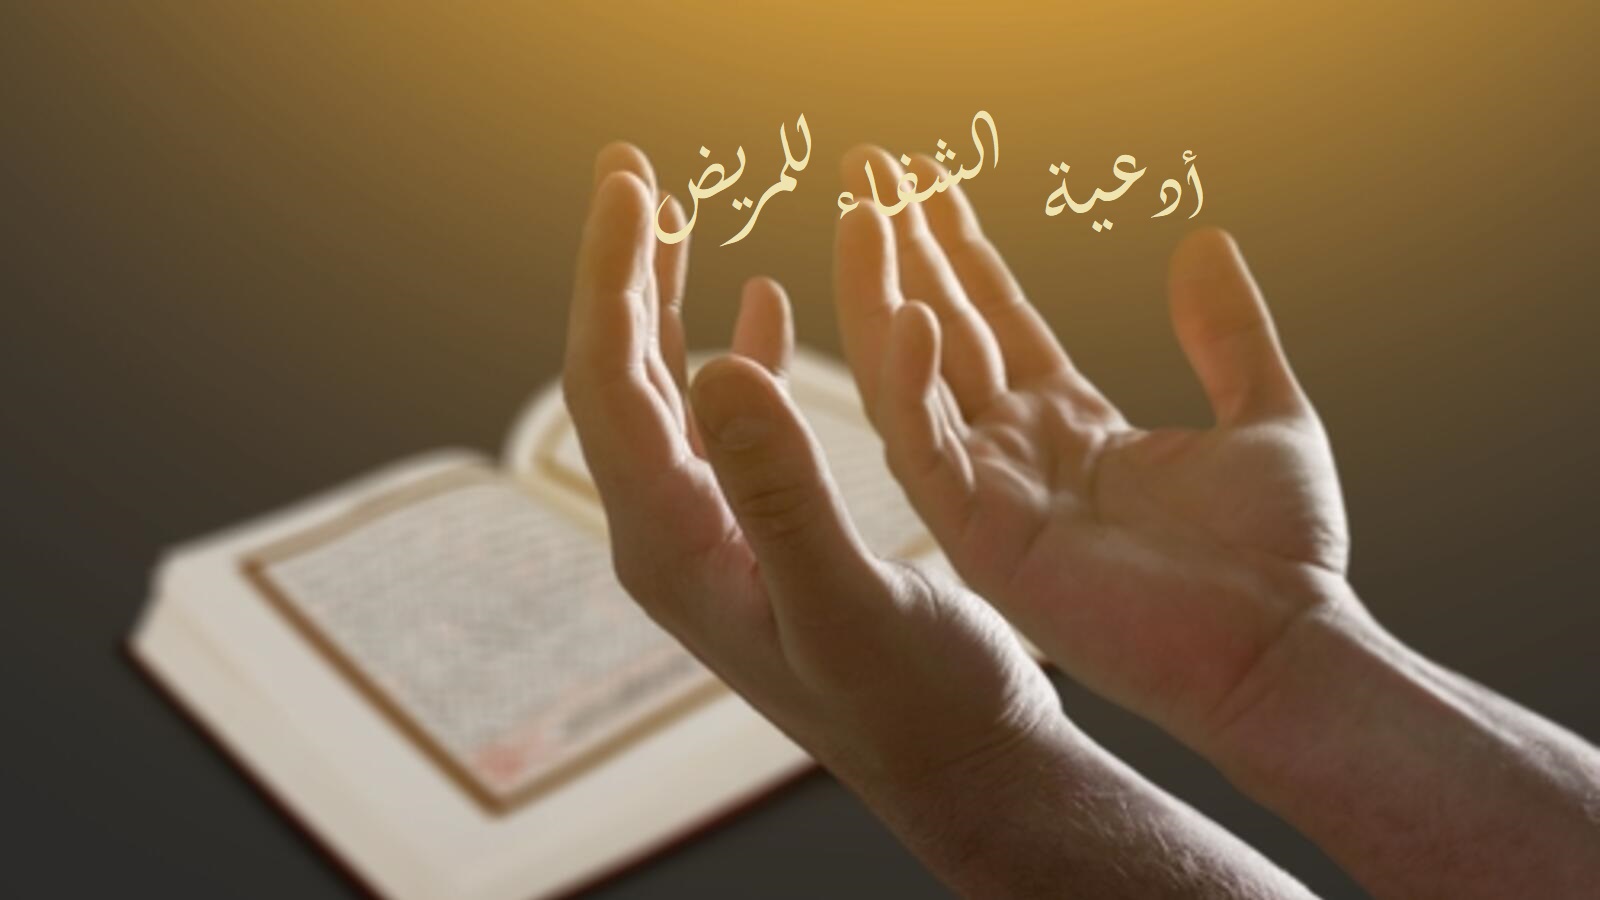 أدعية الشفاء للمريض